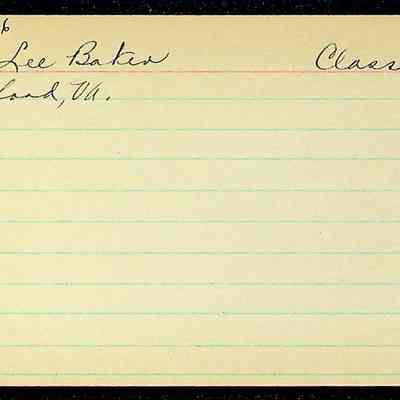 6
Lee Baker Class
Va.